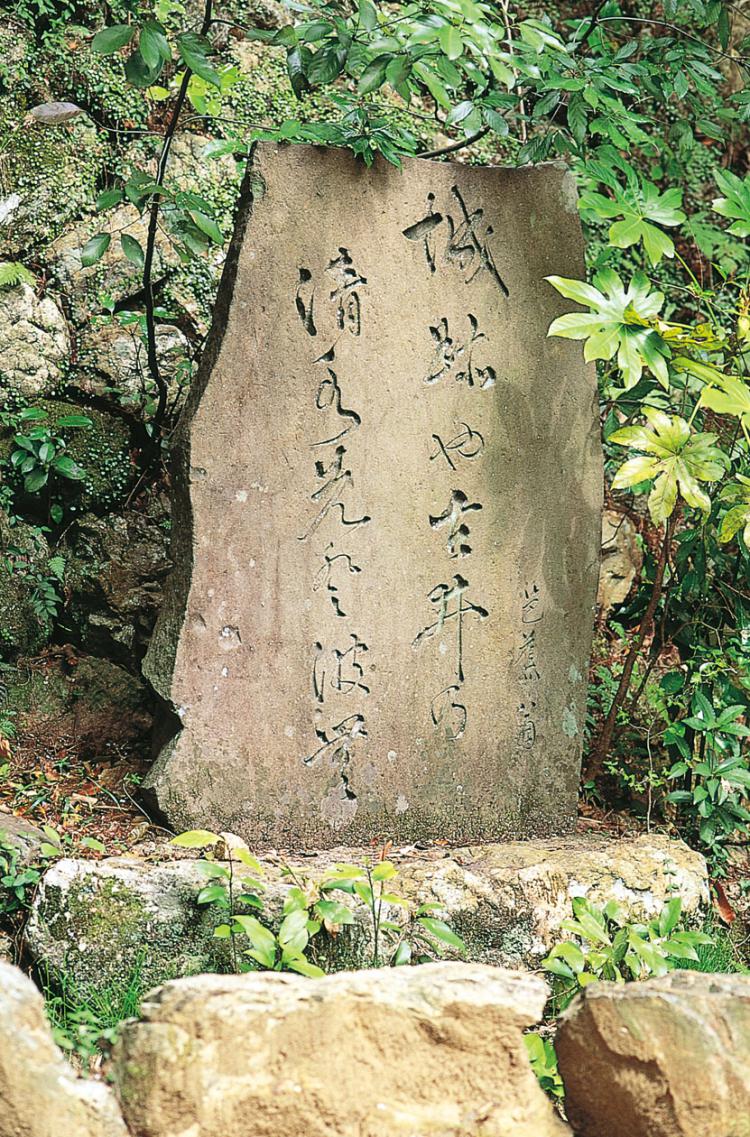 芭蕉翁
城跡や古井の
清水先登波無